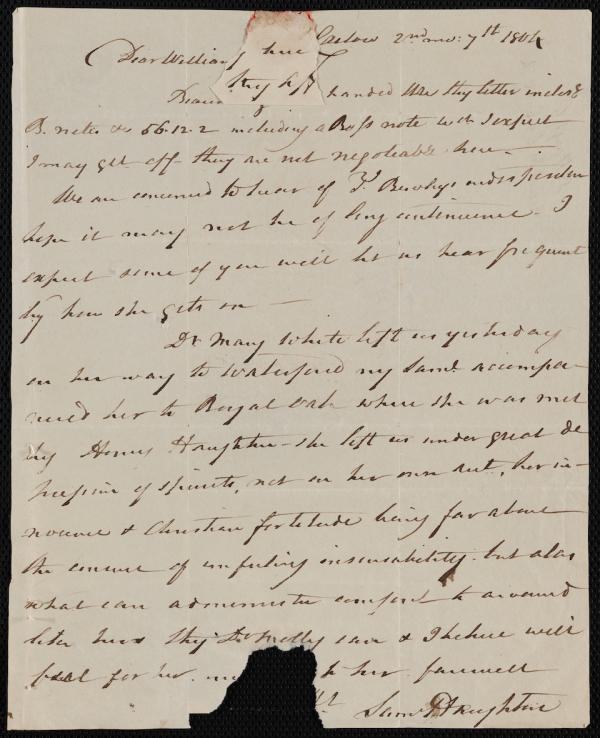 Carlow 2nd mo: 7th 1804
Dear William
thy
handed me thy letter inclosg
B. notes for 56.12.2 including a Ross note wch I expect
I may get off they are not negotiable here —
We are concerned to hear of indisposition
hope it may not be of long continuance. I
expect some of you will let us hear frequent
ly how she gets on —
Dr Mary White left us yesterday
on her way to Waterford my Saml accompa-
nied her to Royal Oak where she was met
by Henry Haughton — she left us under great de
pression of spirits, not on her own acct, her in-
nocence & Christian fortitude being far above
the censure of unfeeling insensibility. but alas
what can administer comfort to a wound
like hers thy Dr Molly can & I believe will
feel for her. to her farewell
Saml Haughton